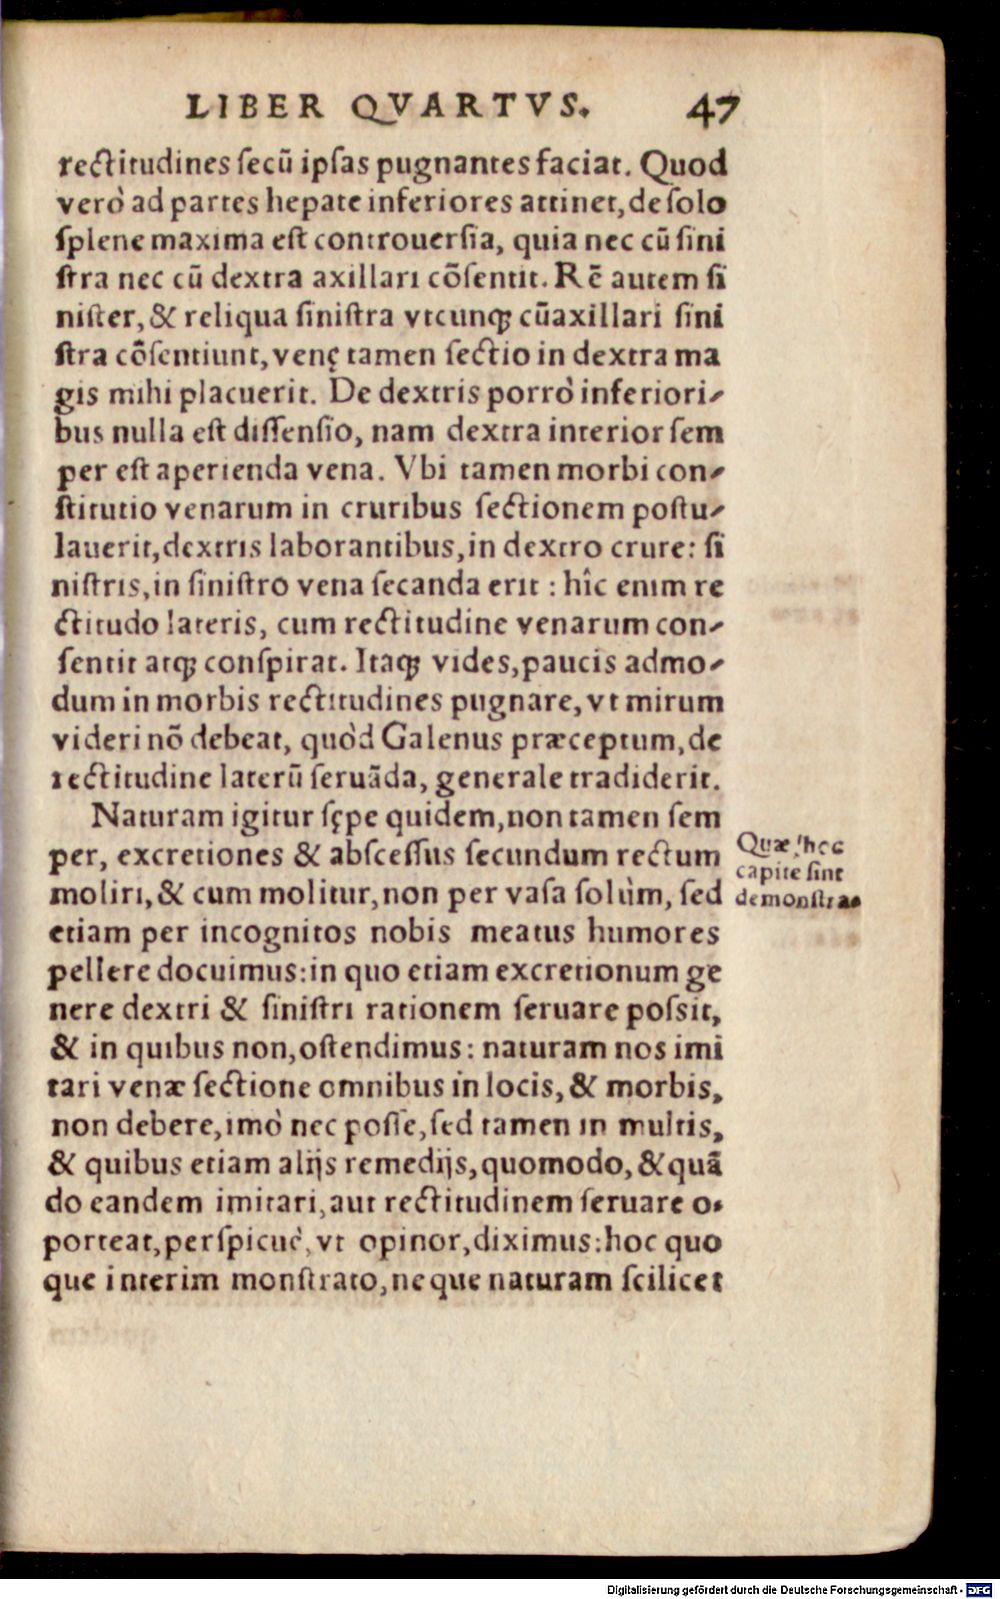 LIBER QVARTVS. 47
rectitudines secũ ipsas pugnantes faciat. Quod
verò ad partes hepate inferiores attinet, de solo
splene maxima est controuersia, quia nec cũ sini
stra nec cũ dextra axillari cõsentit. Rẽ autem si
nister, & reliqua sinistra vtcunq; cũ axillari sini
stra cõsentiunt, venę tamen sectio in dextra ma
gis mihi placuerit. De dextris porrò inferiori-
bus nulla est dissensio, nam dextra interior sem
per est aperienda vena. Vbi tamen morbi con-
stitutio venarum in cruribus sectionem postu-
lauerit, dextris laborantibus, in dextro crure: si
nistris, in sinistro vena secanda erit : hîc enim re
ctitudo lateris, cum rectitudine venarum con-
sentit atq; conspirat. Itaq; vides, paucis admo-
dum in morbis rectitudines pugnare, vt mirum
videri nõ debeat, quòd Galenus præceptum, de
rectitudine laterũ seruãda, generale tradiderit.
Naturam igitur sępe quidem, non tamen sem
per, excretiones & abscessus secundum rectum
moliri, & cum molitur, non per vasa solùm, sed
etiam per incognitos nobis meatus humores
pellere docuimus: in quo etiam excretionum ge
nere dextri & sinistri rationem seruare possit,
& in quibus non, ostendimus: naturam nos imi
tari venæ sectione omnibus in locis, & morbis,
non debere, imò nec posse, sed tamen in multis,
& quibus etiam alijs remedijs, quomodo, & quã
do eandem imitari, aut rectitudinem seruare o-
porteat, perspicuè, vt opinor, diximus: hoc quo
que interim monstrato, neque naturam scilicet
Quæ hoc
capite sint
demonstra-
Digitalisierung gefördert durch die Deutsche Forschungsgemeinschaft - DFG